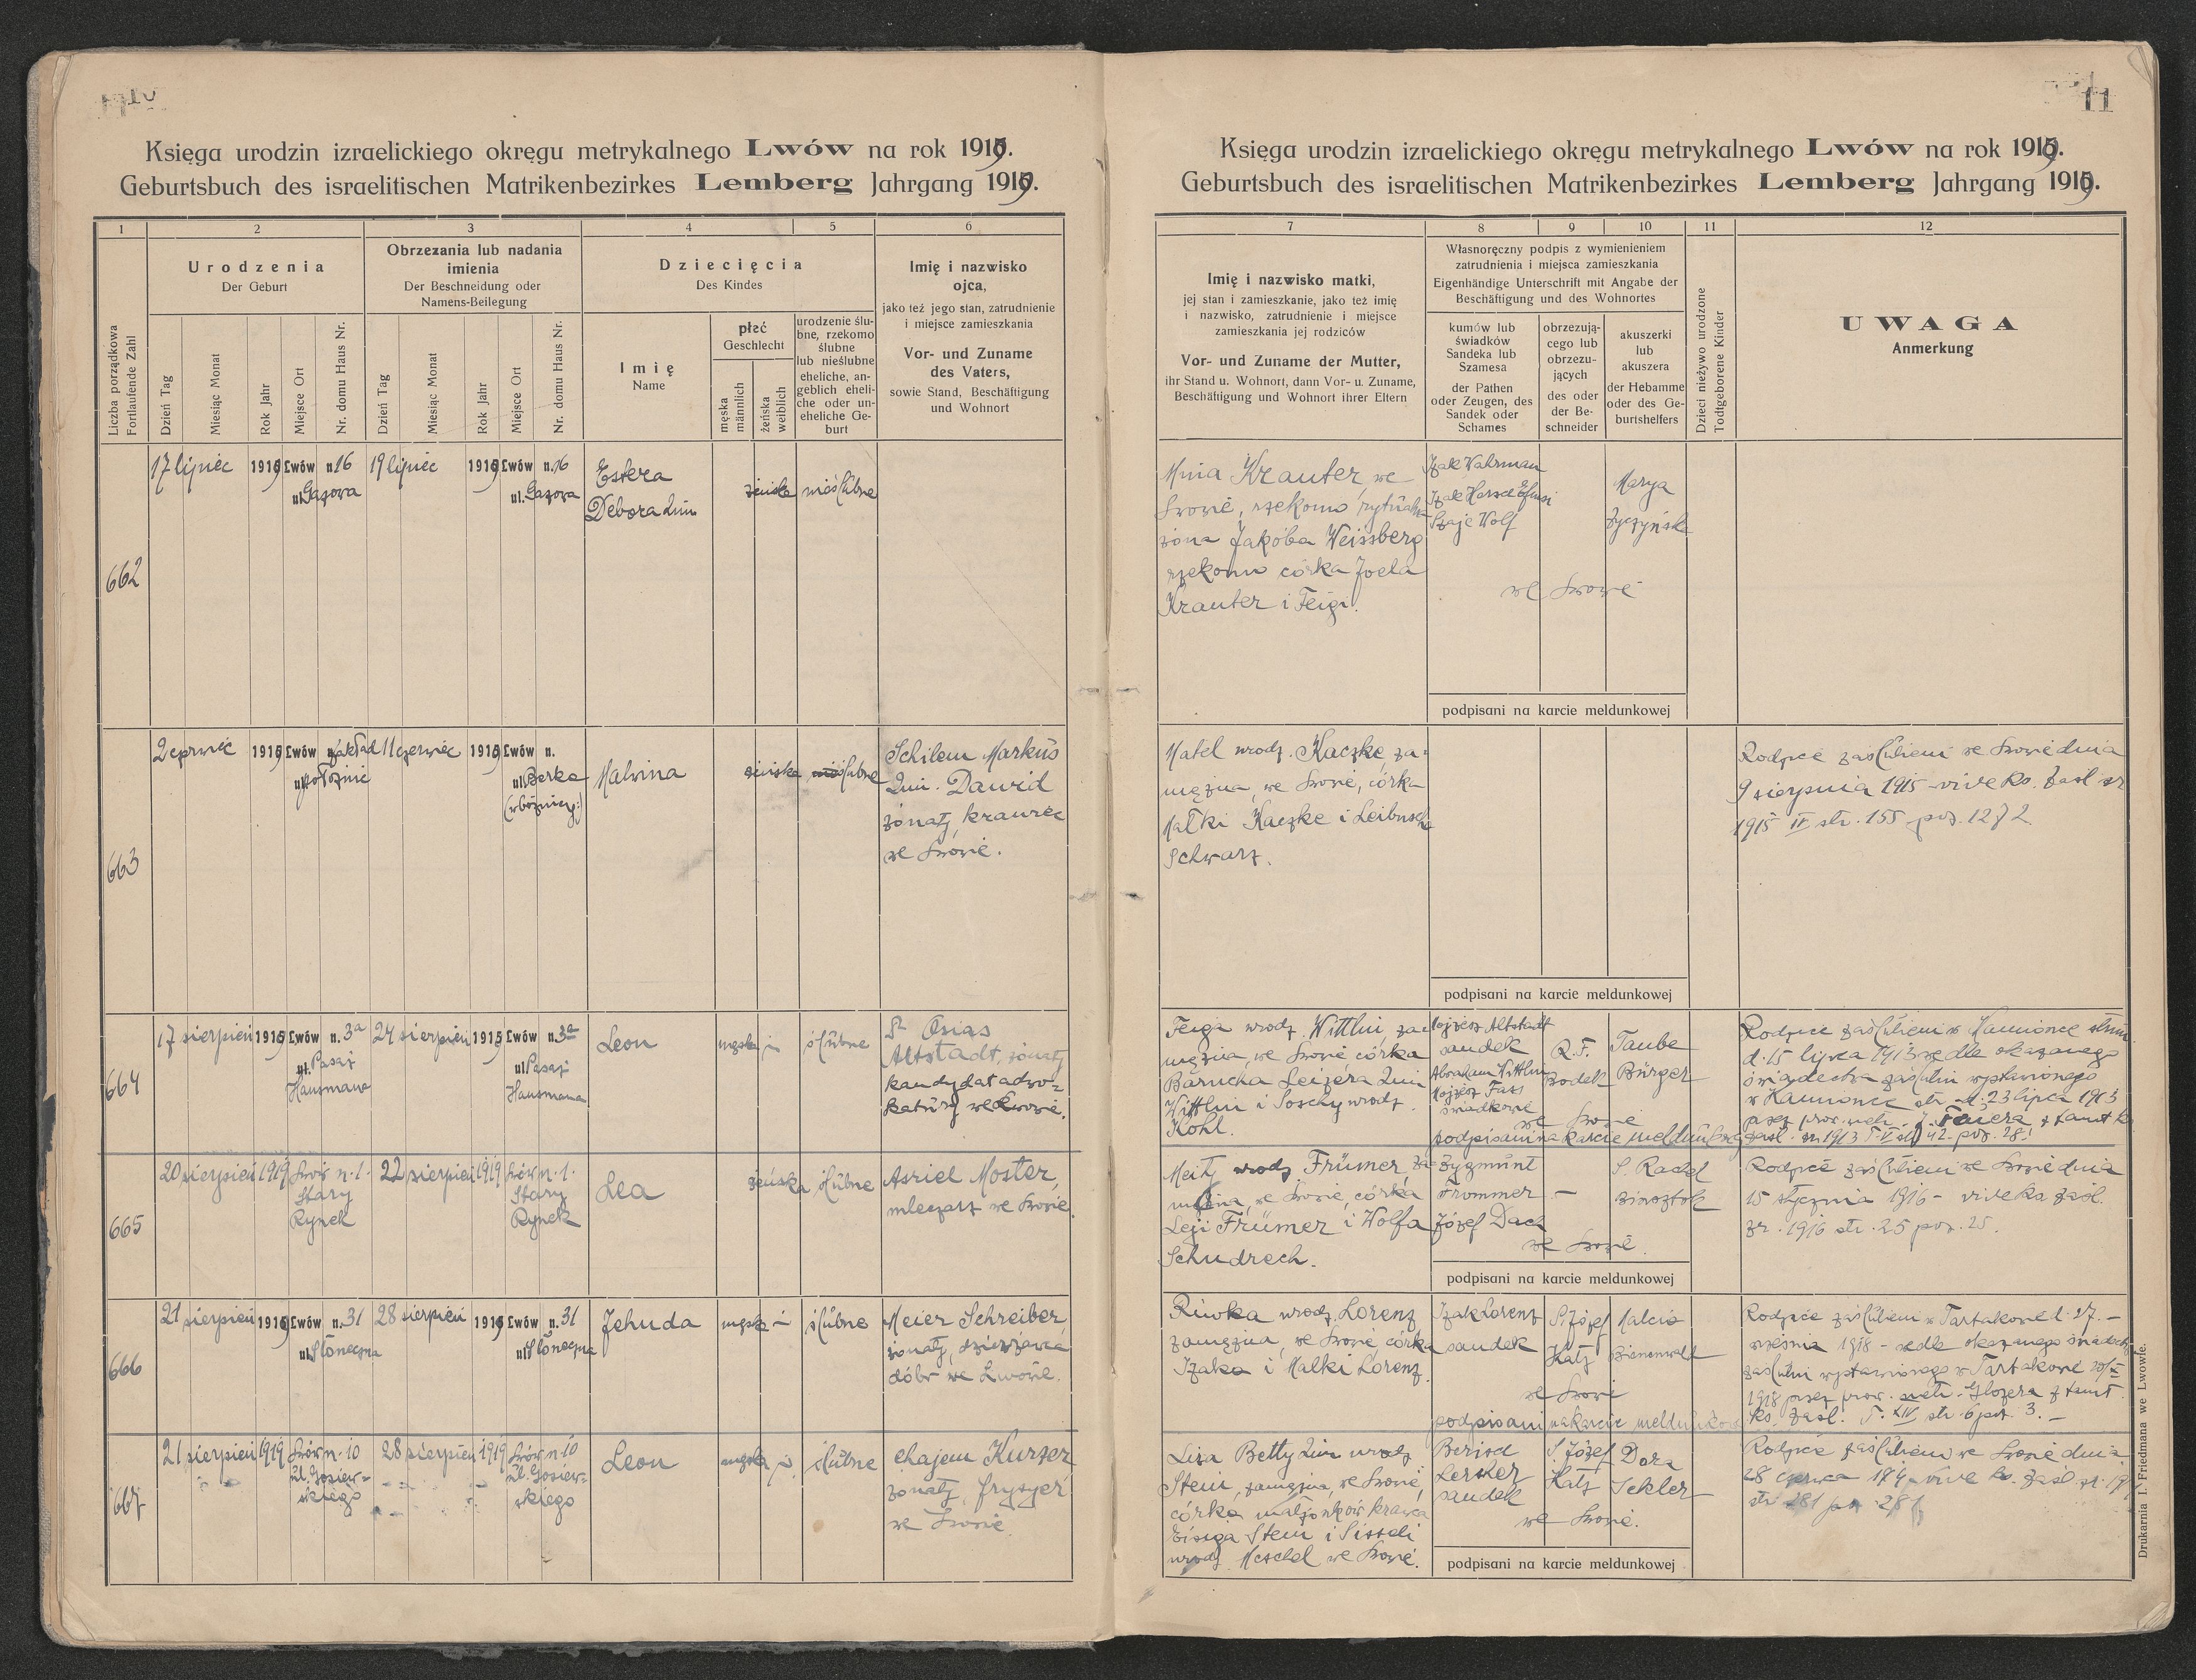 11
Księga urodzin izraelickiego okręgu metrykalnego Lwów na rok 1919.
Geburtsbuch des israelitischen Matrikenbezirkes Lemberg Jahrgang 1919.
1 2 3 4 5 6
Liczba porządkowa
Fortlaufende Zahl
Urodzenia
Der Geburt
Dzień Tag
Miesiąc Monat
Rok Jahr
Miejsce Ort
Nr. domu Haus Nr.
Obrzezania lub nadania
imienia
Der Beschneidung oder
Namens-Beilegung
Dzień Tag
Miesiąc Monat
Rok Jahr
Miejsce Ort
Nr. domu Haus Nr.
Dziecięcia
Des Kindes
Imię
Name
płeć
Geschlecht
męska
männlich
żeńska
weiblich
urodzenie ślu-
bne, rzekomo
ślubne
lub nieślubne
eheliche, an-
geblich eheli-
che oder un-
eheliche Ge-
burt
Imię i nazwisko
ojca,
jako też jego stan, zatrudnienie
i miejsce zamieszkania
Vor- und Zuname
des Vaters,
sowie Stand, Beschäftigung
und Wohnort
662
17 lipiec 1919 Lwów n. 16
ul. Gazowa
19 lipiec 1919 Lwów n. 16
ul. Gazowa
Estera
Debora 2im
żeńska
nieślubne
663
2 czerwiec 1919 Lwów zakład
położnic
11 czerwiec 1919 Lwów n.
ul. Berka
(w bóżnicy)
Malwina
żeńska
nieślubne
Schilem Markus
2im. Dawid
żonaty, krawiec
we Lwowie.
664
17 sierpień 1919 Lwów n. 3a
ul. Pasaż
Hausmana
24 sierpień 1919 Lwów n. 3a
ul. Pasaż
Hausmana
Leon
męska
ślubne
Osias
Altstadt, żonaty
kandydat adwo-
katury we Lwowie.
665
20 sierpień 1919 Lwów n. 1.
Stary
Rynek
22 sierpień 1919 Lwów n. 1.
Stary
Rynek
Lea
żeńska
ślubne
Asriel Moster,
mleczarz we Lwowie.
666
21 sierpień 1919 Lwów n. 31
ul. Słoneczna
28 sierpień 1919 Lwów n. 31
ul. Słoneczna
Jehuda
męska
ślubne
Meier Schreiber
żonaty, dzierżawca
dóbr we Lwowie.
667
21 sierpień 1919 Lwów n. 10
ul. Gosiew-
skiego
28 sierpień 1919 Lwów n. 10
ul. Gosiew-
skiego
Leon
męska
ślubne
Chajem Kurzer
żonaty, fryzyer
we Lwowie.
Księga urodzin izraelickiego okręgu metrykalnego Lwów na rok 1919.
Geburtsbuch des israelitischen Matrikenbezirkes Lemberg Jahrgang 1919.
7 8 9 10 11 12
Imię i nazwisko matki,
jej stan i zamieszkanie, jako też imię
i nazwisko, zatrudnienie i miejsce
zamieszkania jej rodziców
Vor- und Zuname der Mutter,
ihr Stand u. Wohnort, dann Vor- u. Zuname,
Beschäftigung und Wohnort ihrer Eltern
Własnoręczny podpis z wymienieniem
zatrudnienia i miejsca zamieszkania
Eigenhändige Unterschrift mit Angabe der
Beschäftigung und des Wohnortes
kumów lub
świadków
Sandeka lub
Szamesa
der Pathen
oder Zeugen, des
Sandek oder
Schames
obrzezują-
cego lub
obrzezu-
jących
des oder
der Be-
schneider
akuszerki
lub
akuszera
der Hebamme
oder des Ge-
burtshelfers
Dzieci nieżywo urodzone
Todtgeborene Kinder
UWAGA
Anmerkung
Mina Krauter, we
Lwowie, rzekomo rytualna
żona Jakóba Weissberg
rzekomo córka Joela
Krauter i Feigi.
Izak Wahrman
Izak Hersch
Szaje Wolf
Marya
Życzyńska
we Lwowie
podpisani na karcie meldunkowej
Matel urodz. Kaczke za-
mężna, we Lwowie, córka
Małki Kaczke i Leibusch
Schwarz.
podpisani na karcie meldunkowej
Rodzice zaślubieni we Lwowie dnia
9 sierpnia 1915 - vive ks. zaśl. zr
1915 II str. 155 poz. 1272
Feiga urodz. Wittlin, za-
mężna, we Lwowie córka
Barucha Leizera 2im
Wittlin i Soschy urodz.
Kohl.
Mojżesz Altstadt
sandek
Abraham Wittlin
Mojżesz Fass
świadkowie
Taube
Bürger
we Lwowie
podpisani na karcie meldunkowej
Rodzice zaślubieni w Kamionce strum.
d. 15 lipca 1913 wedle okazanego
świadectwa zaślubin wystawionego
w Kamionce str. d. 23 lipca 1913
Meity urodz Frümer za-
mężna, we Lwowie, córka
Leji Frümer i Wolfa
Schudrech.
Zygmunt
Frommer
Józef Dach
—
S. Rachel
we Lwowie.
podpisani na karcie meldunkowej
Rodzice zaślubieni we Lwowie dnia
15 stycznia 1916 - vive ks. zaśl.
zr. 1916 str. 25 poz. 25.
Riwka urodz. Lorenz
zamężna, we Lwowie córka
Izaka i Małki Lorenz.
Izak Lorenz
sandek
S. Józef
Katz
Malcia
Bienenwald
we Lwowie
podpisani na karcie meldunkowej
Rodzice zaślubieni w Tartakowie d. 17. -
września 1918 - wedle okazanego świadectwa
zaślubin wystawionego w Tartakowie
ks. zaśl. T. XIV str. 6 poz. 3. -
Liza Betty 2im urodz
Stein, zamężna, we Lwowie,
córka małżonków krawca
Eisiga Stein i Sissli
urodz. Meschel we Lwowie.
Berisch
Lerker
sandek
S. Józef
Katz
Dora
Sekler
we Lwowie.
podpisani na karcie meldunkowej
Rodzice zaślubieni we Lwowie dnia
28 czerwca
str. 281 poz. 281
Drukarnia I. Friedmana we Lwowie.